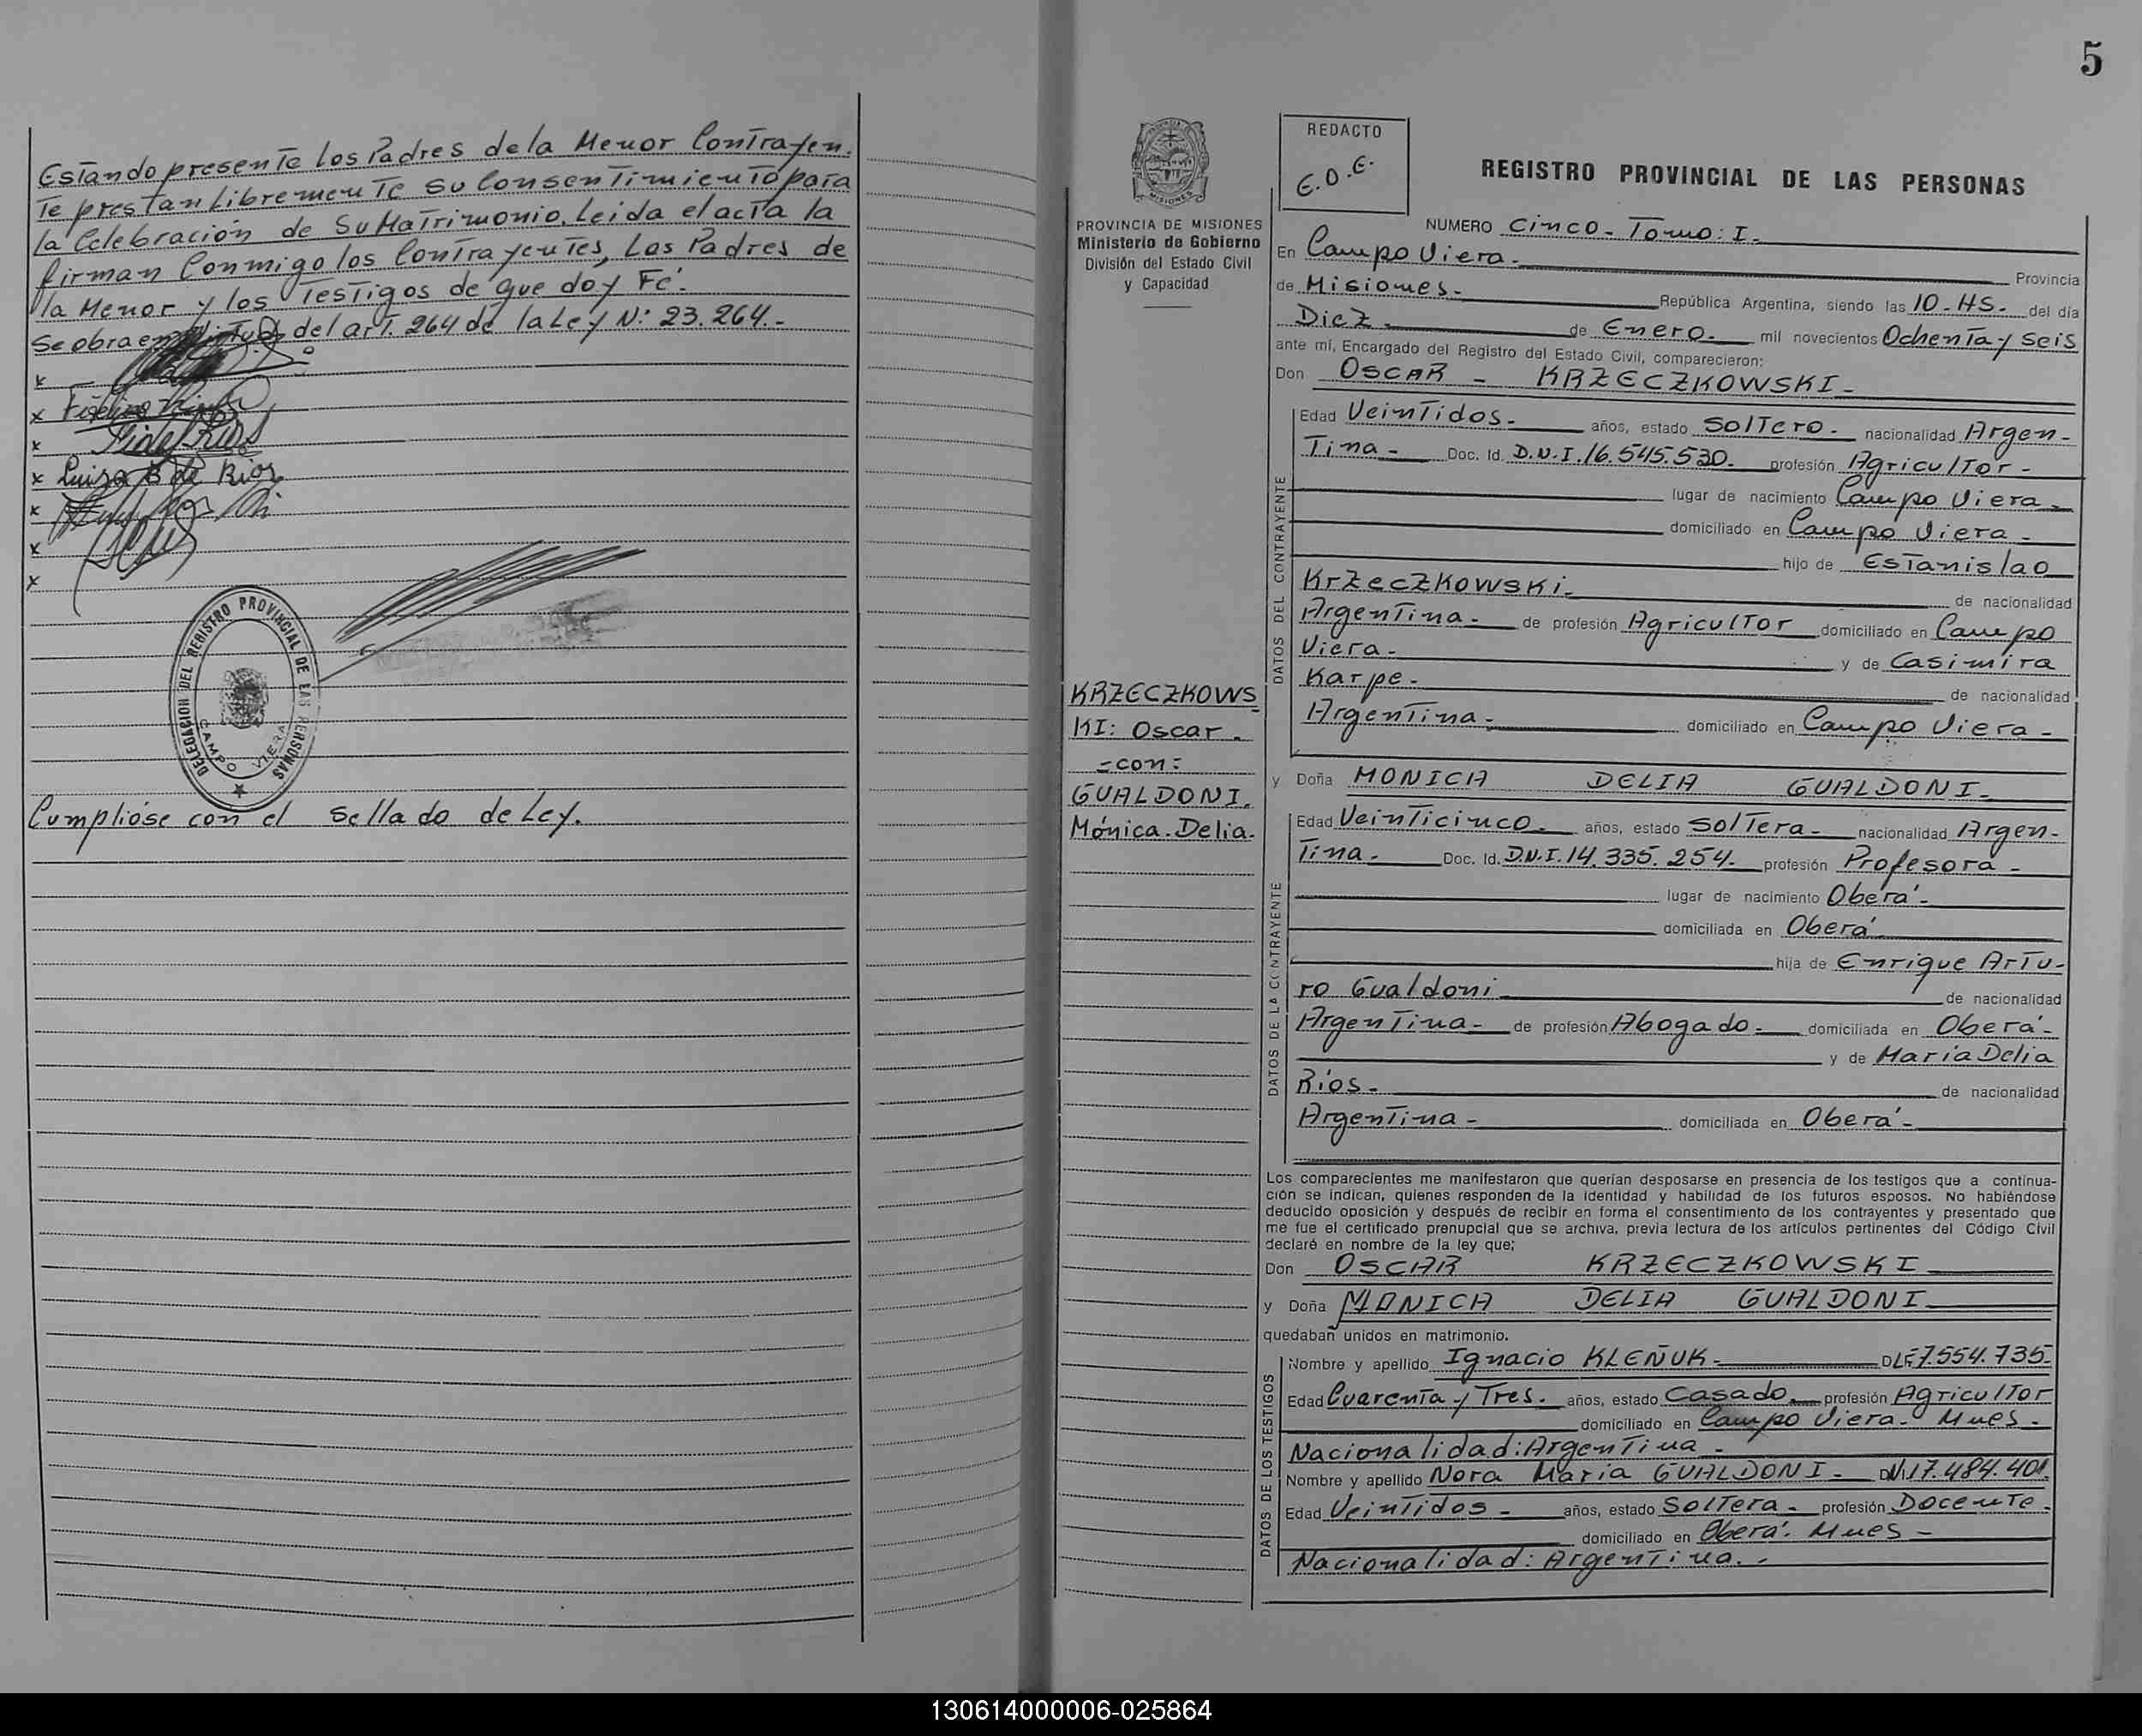 Estando presente los Padres de la Menor Contrayen.
te prestan libremente su Consentimiento para
la Celebración de Su Matrimonio. Leida el acta la
firman Conmigo los Contrayentes, Los Padres de
la Menor y los Testigos de que doy Fé.
Se obra en virtud del art. 264 de la Ley N: 23.264.-
x
x
x
x Luisa B de Rios
x
x
x
DELEGACION DEL REGISTRO PROVINCIAL DE LAS PERSONAS
CAMPO VIERA
Cumplióse con el sellado de Ley.
5
PROVINCIA DE MISIONES
Ministerio de Gobierno
División del Estado Civil
y Capacidad
KRZECZKOWS
KI: Oscar.
=con=
GUALDONI.
Mónica-Delia.
REDACTO
E.O.E.
REGISTRO PROVINCIAL DE LAS PERSONAS
NUMERO Cinco-Tomo: I.-
En Campo Viera.- Provincia
de Misiones.- República Argentina, siendo las 10-HS. del día
Diez.- de Enero.- mil novecientos Ochenta y Seis
ante mí, Encargado del Registro del Estado Civil, comparecieron:
Don OSCAR - KRZECZKOWSKI-
DATOS DEL CONTRAYENTE
Edad Veintidos- años, estado Soltero- nacionalidad Argen-
tina- Doc. Id. D.N.I. 16.545.530. profesión Agricultor-
lugar de nacimiento Campo Viera-
domiciliado en Campo Viera-
hijo de Estanislao
Krzeczkowski- de nacionalidad
Argentina- de profesión Agricultor domiciliado en Campo
Viera- y de Casimira
Karpe- de nacionalidad
Argentina- domiciliado en Campo Viera-
y Doña MONICA DELIA GUALDONI-
DATOS DE LA CONTRAYENTE
Edad Veinticinco- años, estado Soltera- nacionalidad Argen-
tina- Doc. Id. D.N.I. 14.335.254- profesión Profesora-
lugar de nacimiento Oberá-
domiciliada en Oberá-
hija de Enrique Artu-
ro Gualdoni de nacionalidad
Argentina- de profesión Abogado- domiciliada en Oberá-
y de María Delia
Ríos- de nacionalidad
Argentina- domiciliada en Oberá-
Los comparecientes me manifestaron que querían desposarse en presencia de los testigos que a continua-
ción se indican, quienes responden de la identidad y habilidad de los futuros esposos. No habiéndose
deducido oposición y después de recibir en forma el consentimiento de los contrayentes y presentado que
me fue el certificado prenupcial que se archiva, previa lectura de los artículos pertinentes del Código Civil
declaré en nombre de la ley que:
Don OSCAR KRZECZKOWSKI
y Doña MONICA DELIA GUALDONI
quedaban unidos en matrimonio.
DATOS DE LOS TESTIGOS
Nombre y apellido Ignacio KLEÑUK- DLE 7.554.735-
Edad Cuarenta y Tres. años, estado Casado- profesión Agricultor
domiciliado en Campo Viera- Mnes-
Nacionalidad: Argentina-
Nombre y apellido Nora María GUALDONI- DNI 17.484.401
Edad Veintidos- años, estado Soltera- profesión Docente-
domiciliado en Oberá- Mnes-
Nacionalidad: Argentina.-
130614000006-025864